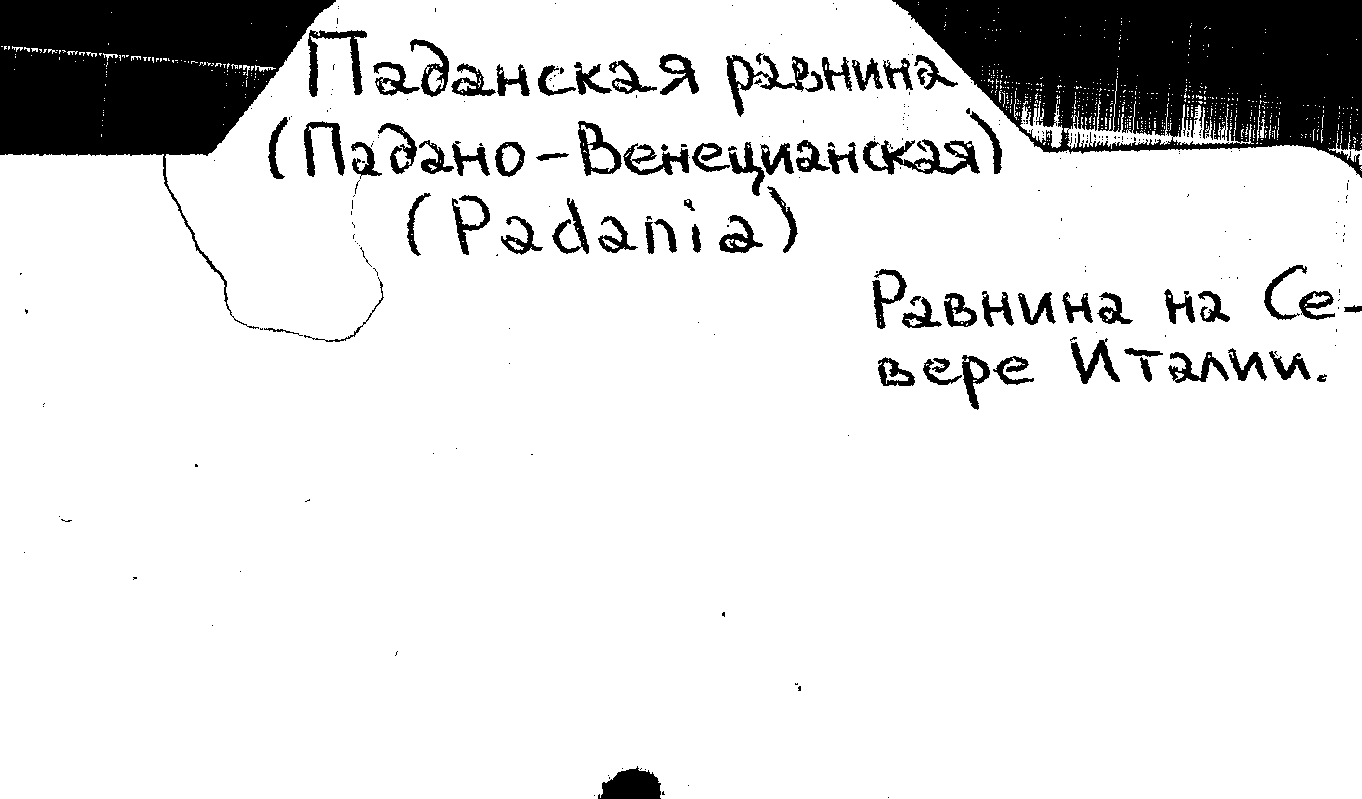 Паданская равнина
(Падано-Венецианская)
(Padania)
Равнина на Се-
вере Италии.